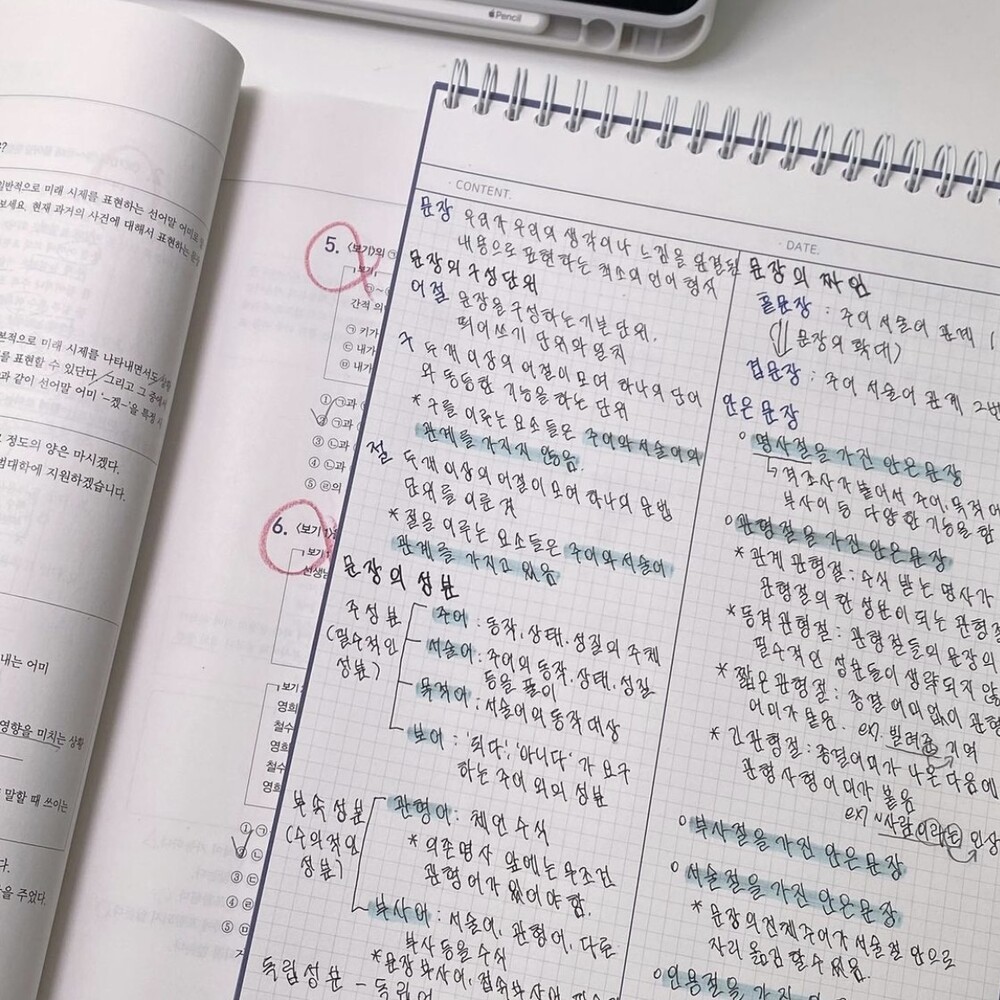 Pencil
일반적으로 미래 시제를 표현하는 선어말 어미로
보세요. 현재 과거의 사건에 대해서 표현하는
본적으로 미래 시제를 나타내면서도
를 표현할 수 있단다. 그리고 그 중에서
과 같이 선어말 어미 '-겠-'을 특정 시
정도의 양은 마시겠다.
범대학에 지원하겠습니다.
내는 어미
영향을 미치는 상황
말할 때 쓰이는
을 주었다.
5. <보기>의 ㉠
보기
간적 의
㉠ 키가
㉢ 내가
㉤ 내가
① ㉠과
② ㉠과
③ ㉡과
④ ㉡과
⑤ ㉣의
6. <보기 1>을
보기 1
선생님
보기
영희
철수
영희
철수
영희
① ㉠
② ㉡
③ ㉢
④ ㉣
⑤ ㉤
· CONTENT.
문장 우리가 우리의 생각이나 느낌을 완결된
내용으로 표현하는 최소의 언어 형식
문장의 구성단위
어절 문장을 구성하는 기본 단위.
띄어쓰기 단위와 일치
구 두 개 이상의 어절이 모여 하나의 단어
와 동등한 기능을 하는 단위
* 구를 이루는 요소들은 주어와 서술어의
관계를 가지지 않음.
절 두 개 이상의 어절이 모여 하나의 문법
단위를 이룬 것
* 절을 이루는 요소들은 주어와 서술어
관계를 가지고 있음
문장의 성분
주성분
(필수적인
성분)
주어 : 동작, 상태, 성질의 주체
서술어 : 주어의 동작, 상태, 성질
등을 풀이
목적어 : 서술어의 동작 대상
보어 : '되다', '아니다'가 요구
하는 주어 외의 성분
부속성분
(수의적인
성분)
관형어 : 체언 수식
* 의존명사 앞에는 무조건
관형어가 있어야 함.
부사어 : 서술어, 관형어, 다른
부사 등을 수식
* 문장 부사어, 접속부사어
독립성분 - 독립어
· DATE.
문장의 짜임
홑문장 : 주어 서술어 관계 1
문장의 확대)
겹문장 : 주어 서술어 관계 2번
안은 문장
○ 명사절을 가진 안은 문장
↳ 격조사가 붙어서 주어, 목적어
부사어 등 다양한 기능을 함
○ 관형절을 가진 안은 문장
* 관계 관형절 : 수식 받는 명사가
관형절의 한 성분이 되는 관형절
* 동격 관형절 : 관형절들의 문장의
필수적인 성분들이 생략되지 않
* 짧은 관형절 : 종결 어미 없이 관형
어미가 붙음. ex) 빌려준 기억
* 긴 관형절 : 종결어미가 나온 다음에
관형사형 어미가 붙음
ex) ~사람이라는 인상
○ 부사절을 가진 안은 문장
○ 서술절을 가진 안은 문장
* 문장의 전체 주어가 서술절 안으로
자리 옮김 할 수 있음.
○ 인용절을 가진 안은